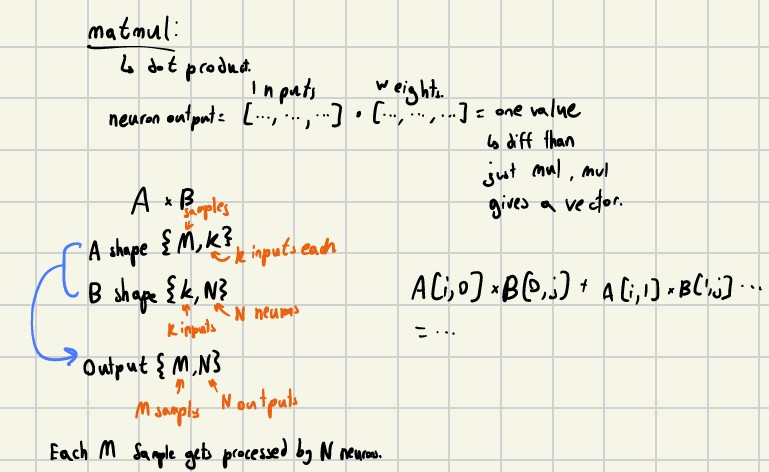 matmul:
↳ dot product.
Inputs weights.
neuron output = [..., ..., ...] • [..., ..., ...] = one value
↳ diff than
just mul, mul
gives a vector.
A × B
samples
A shape {M, k}
k inputs each
B shape {k, N}
k inputs
N neurons
A[i,0] × B[0,j] + A[i,1] × B[1,j] ...
= ...
Output {M,N}
M samply
N outputs
Each M Sample gets processed by N neurons.